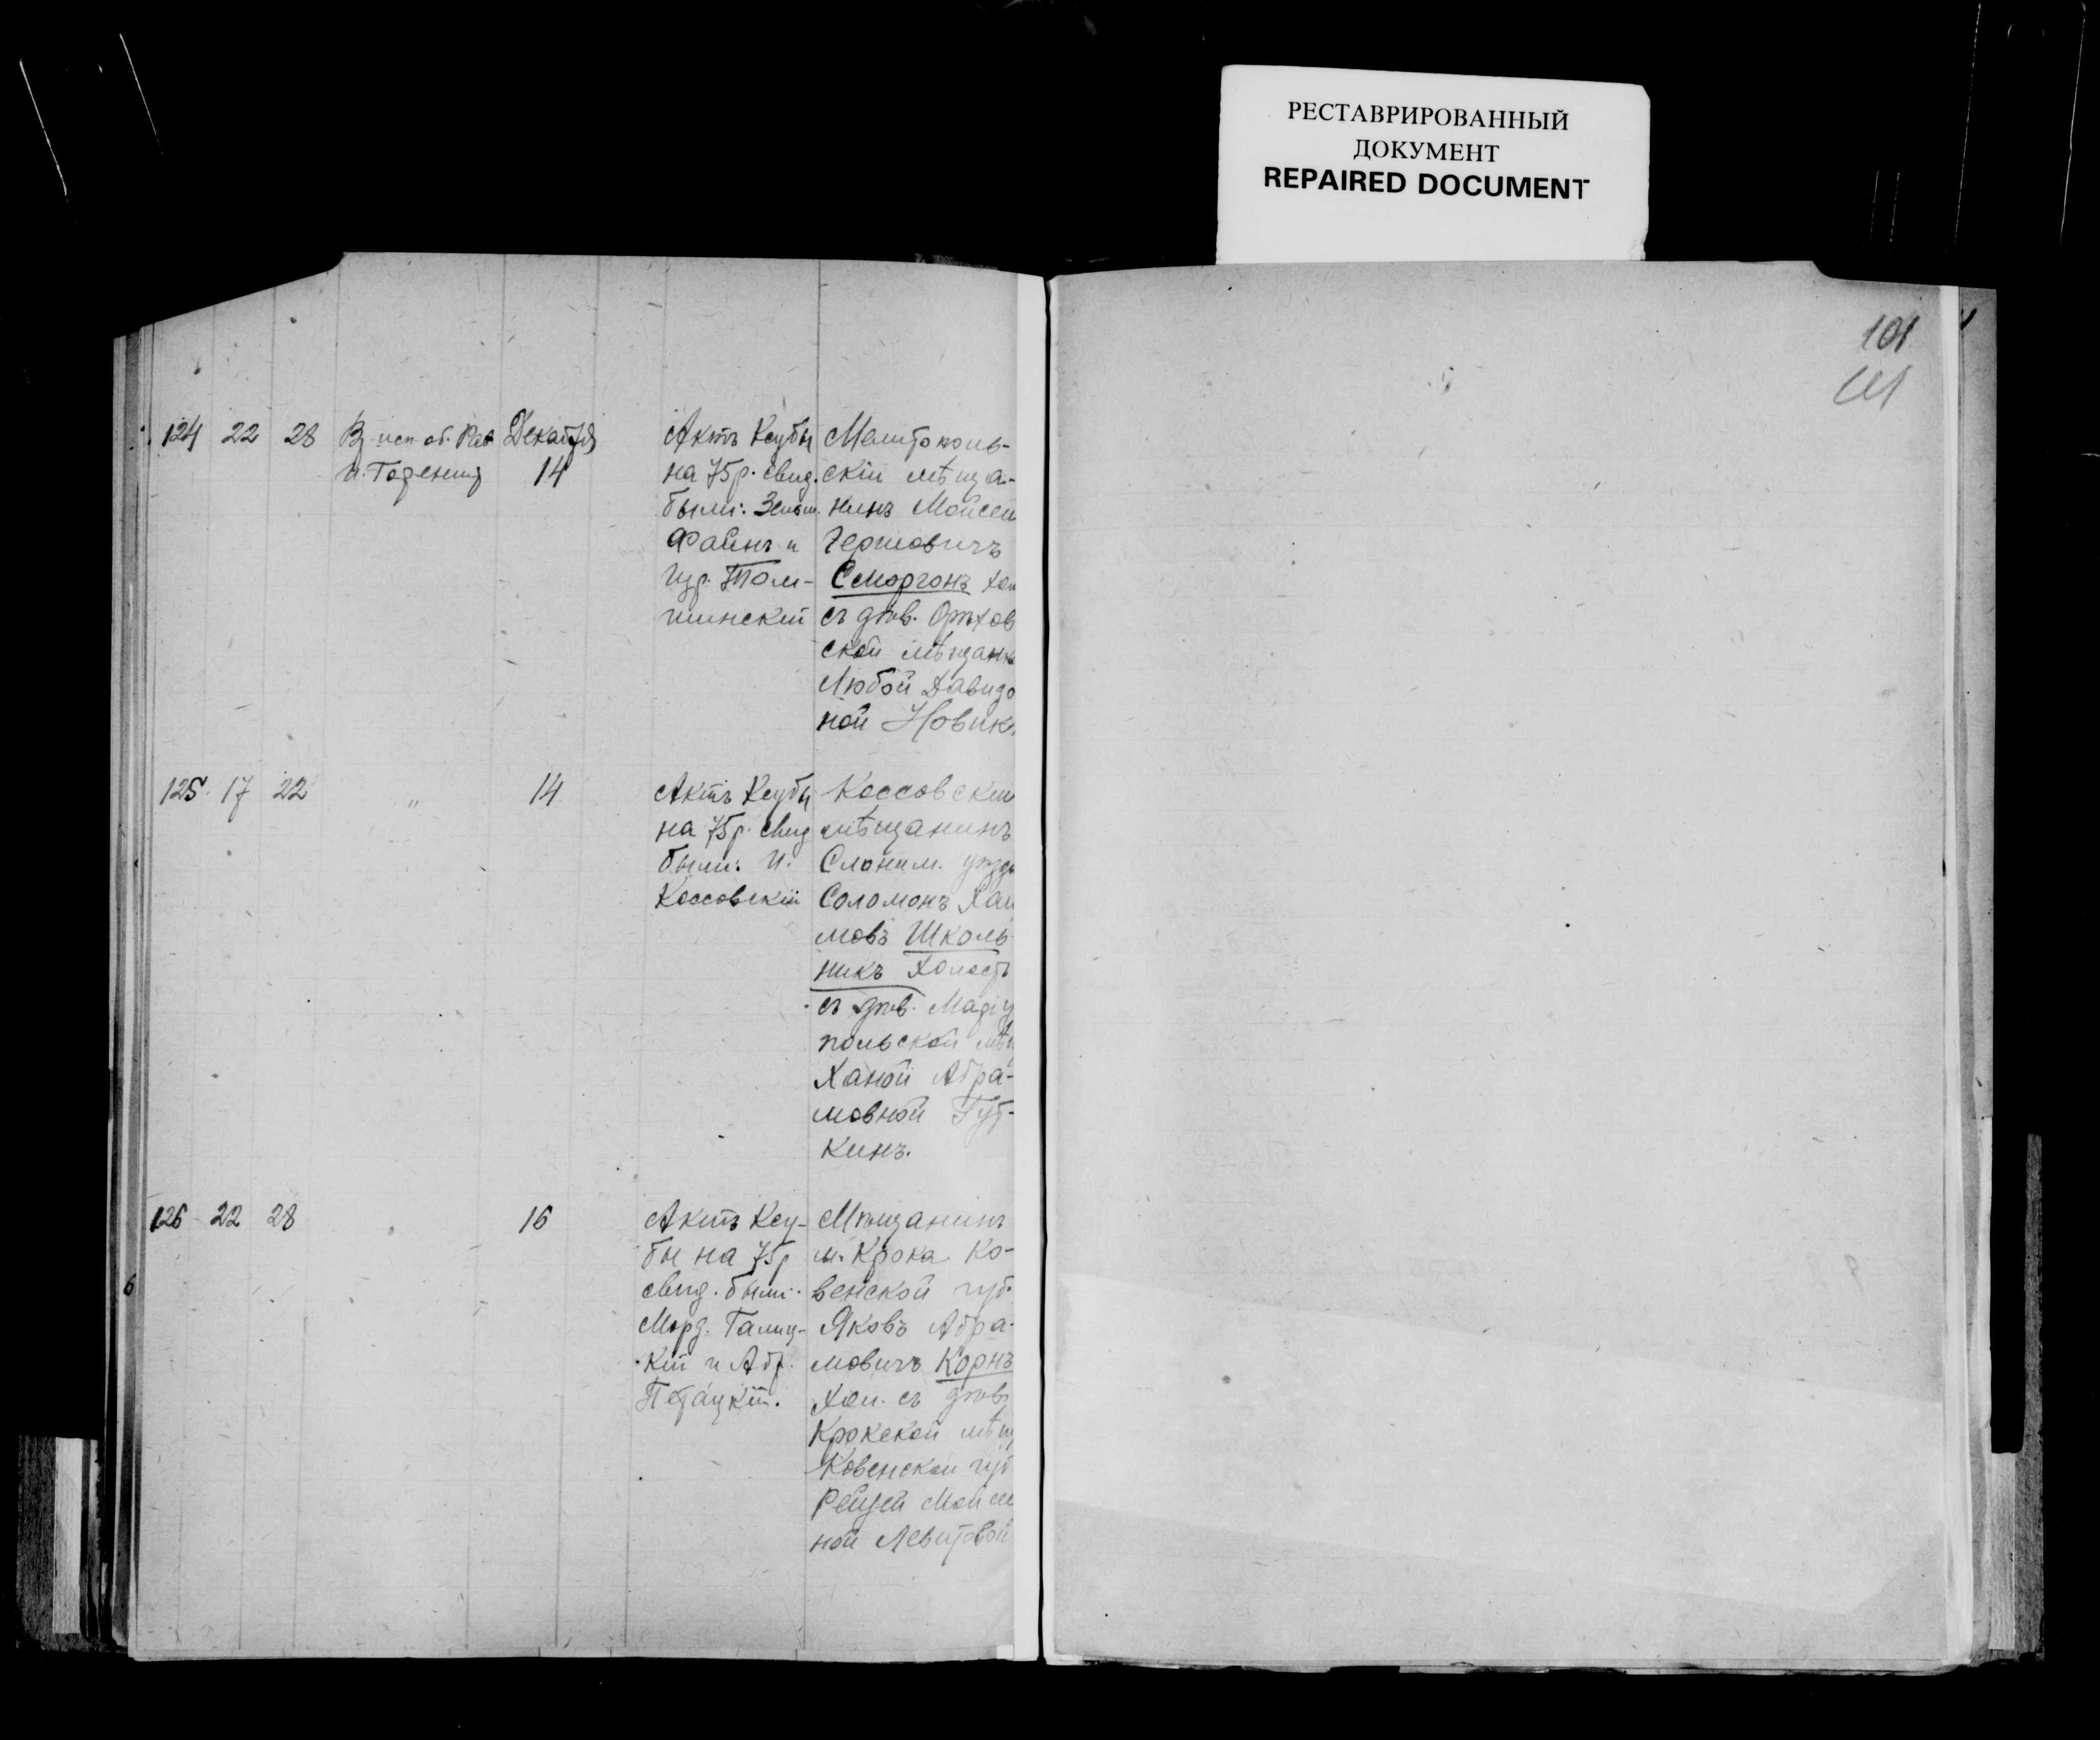 РЕСТАВРИРОВАННЫЙ
ДОКУМЕНТ
REPAIRED DOCUMENT
101
124 22 28 Декабря
14
Актъ Ксубы
на 75 р. свид.
были:
Файнъ и
шинский
Мелитополь-
скій мѣща-
нинъ Мойсей
Гершовичъ
Сморгонъ хол
съ дѣв. Орѣхов
ской мѣщанк
Любой Давидо
ной Новик.
125 17 22 " 14
Актъ Ксубы
на 75 р. свид
были: И.
Коссовскій
Коссовский
мѣщанинъ
Слоним. уѣзда
Соломонъ Хаи
мовъ Школь
никъ холостъ
съ дѣв. Маріу
польской мѣщ
Ханой Абра-
мовной Гут-
кинъ.
126 22 28 " 16
Актъ Ксу-
бы на 75 р
свид. были:
Морд. Галиц-
кій и Абр.
Мѣщанинъ
м. Крока Ко-
венской губ.
Яковъ Абра-
мовичъ Корнъ
хол. съ дѣв.
Крокской мѣщ
Ковенской губ
Рейзей Мойсе
ной Левитовой